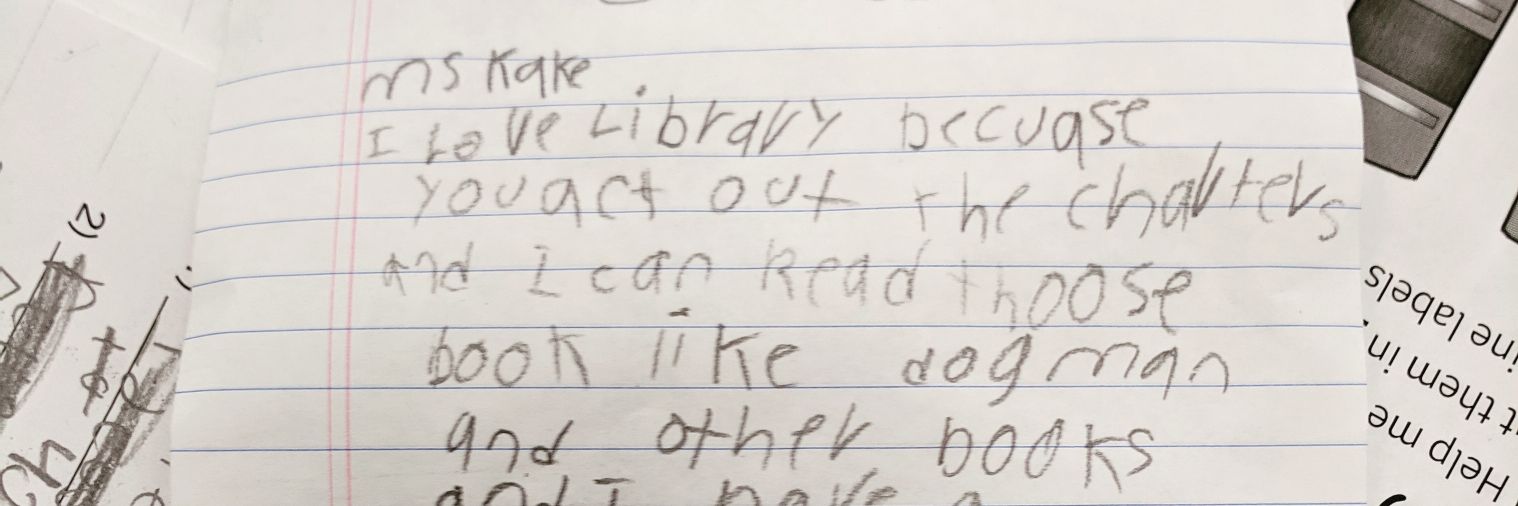 ms Kake
I Love Library becuase
you act out the charters
and I can Read thoose
book like dogman
and other books
and I have a
2)
1)
ine labels
t them in
Help me